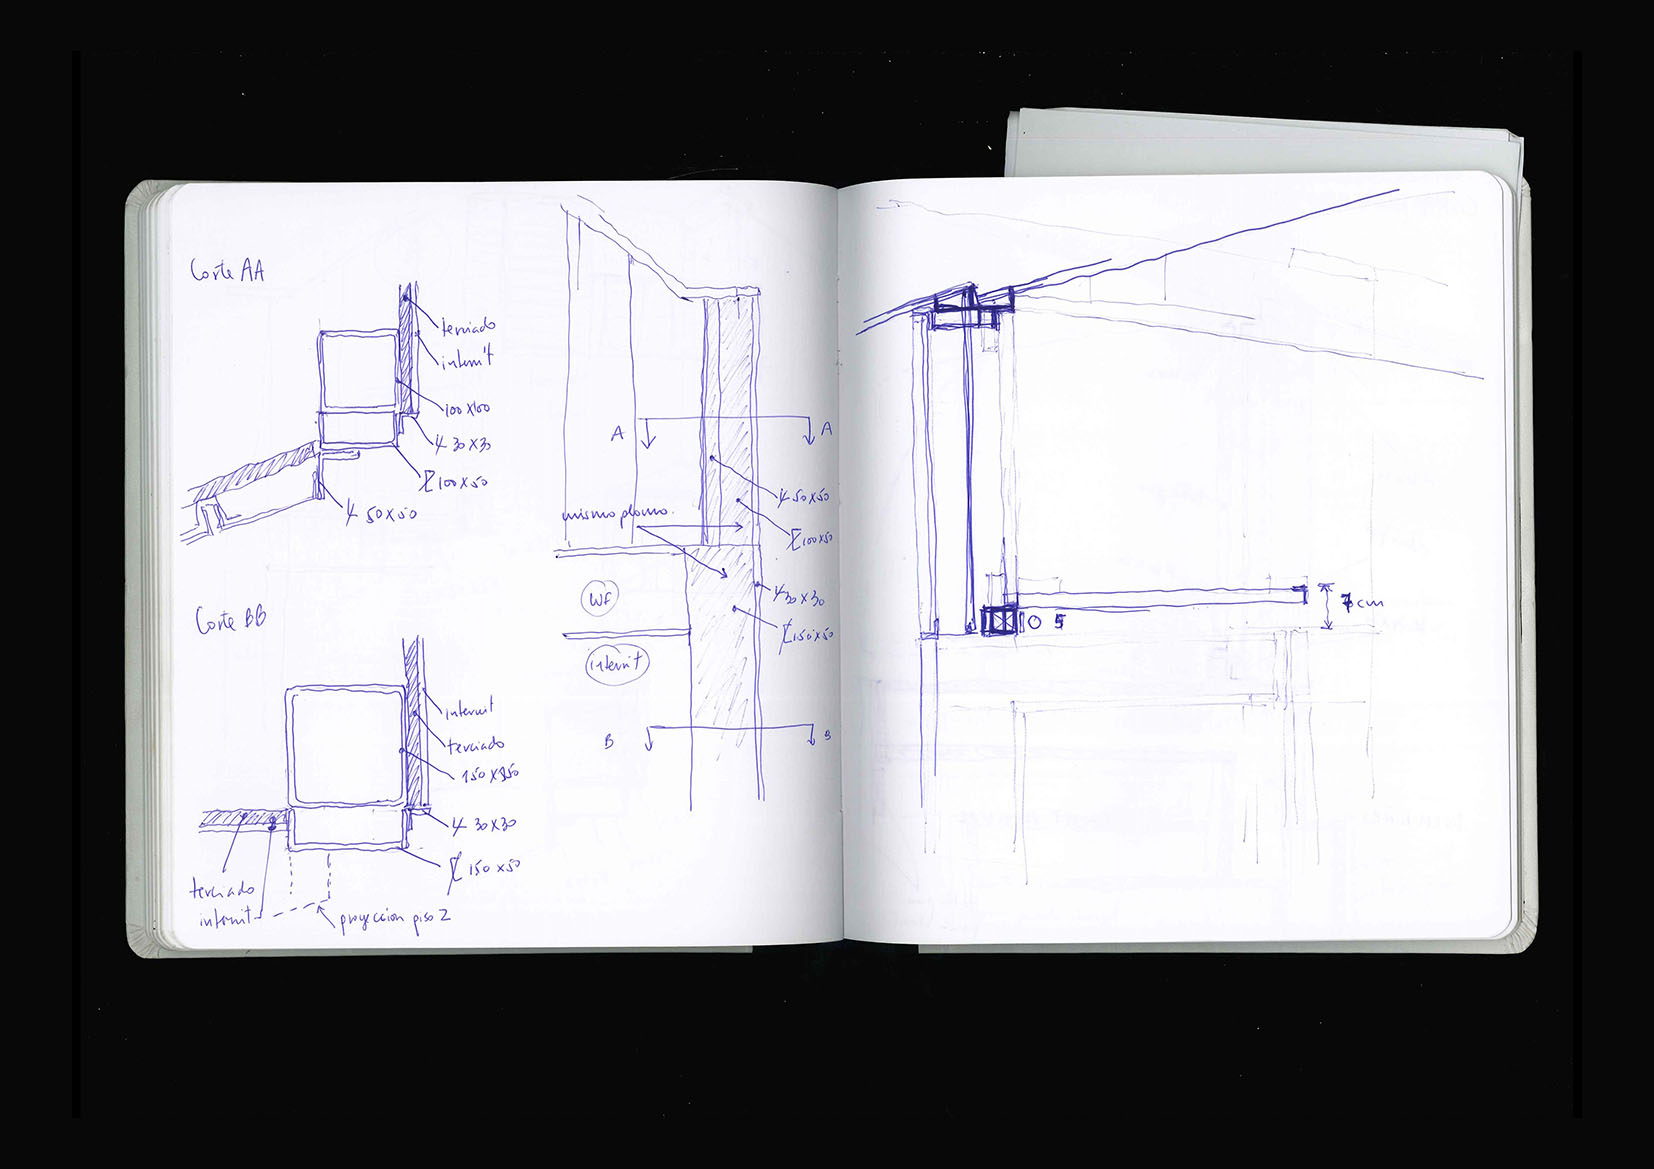 Corte AA
terciado
internit
100x100
30x30
100x50
50x50
Corte BB
internit
terciado
30x30
150x50
terciado
internit
proyeccion piso 2
A
A
50x50
mismo plomo.
100x50
Wf
30x30
150x50
internit
B
B
cm